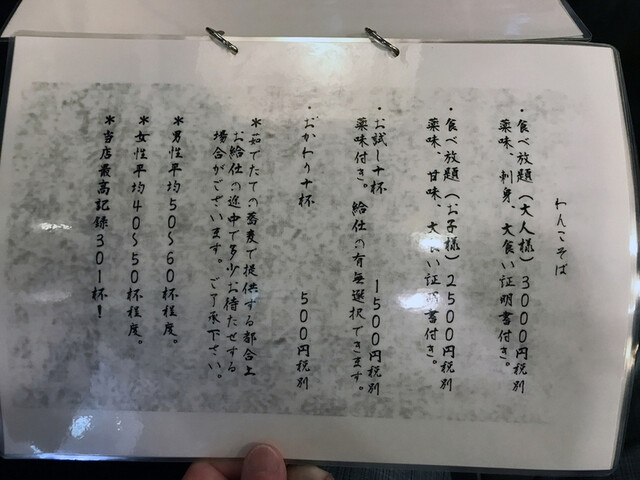 わんこそば
・食べ放題(大人様)3000円税別
薬味、刺身、大食い証明書付き。
・食べ放題(お子様)2500円税別
薬味、甘味、大食い証明書付き。
・お試し十杯 1500円税別
薬味付き。給仕の有無選択できます。
・おかわり十杯 500円税別
*茹でたての蕎麦で提供する都合上
お給仕の途中で多少お待たせする
場合がございます。ご了承下さい。
*男性平均50〜60杯程度。
*女性平均40〜50杯程度。
*当店最高記録301杯!